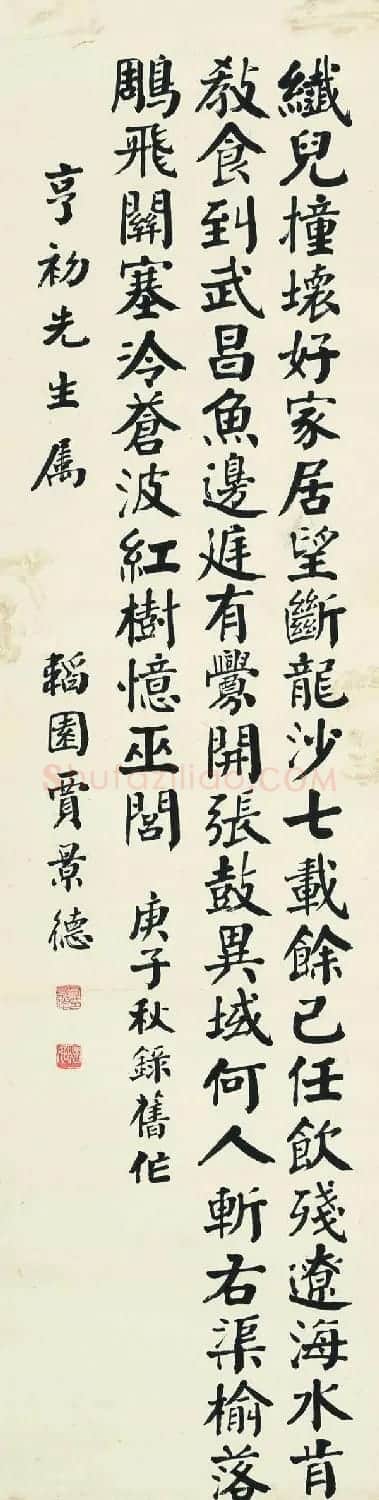 纖兒撞壞好家居望斷龍沙七載餘已任飲殘遼海水肯
教食到武昌魚邊廷有釁開張鼓異域何人斬右渠榆落
鵰飛關塞冷蒼波紅樹憶巫閭
庚子秋錄舊作
亨初先生属
韜園賈景德
Shufaziliao.COM